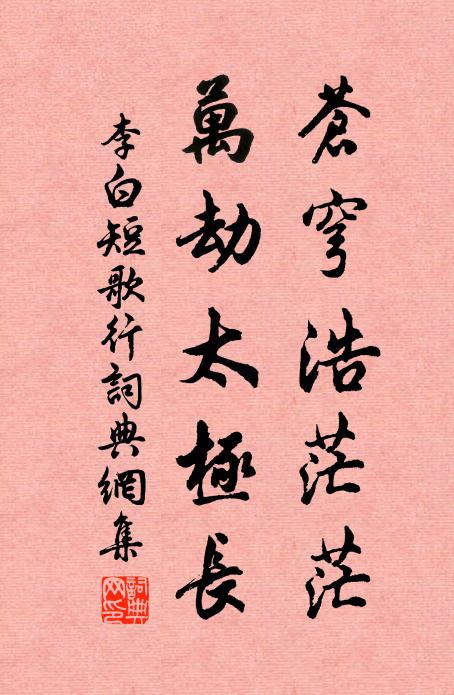 蒼穹浩茫茫
萬劫太極長
李白短歌行詞典網集
詞典网印